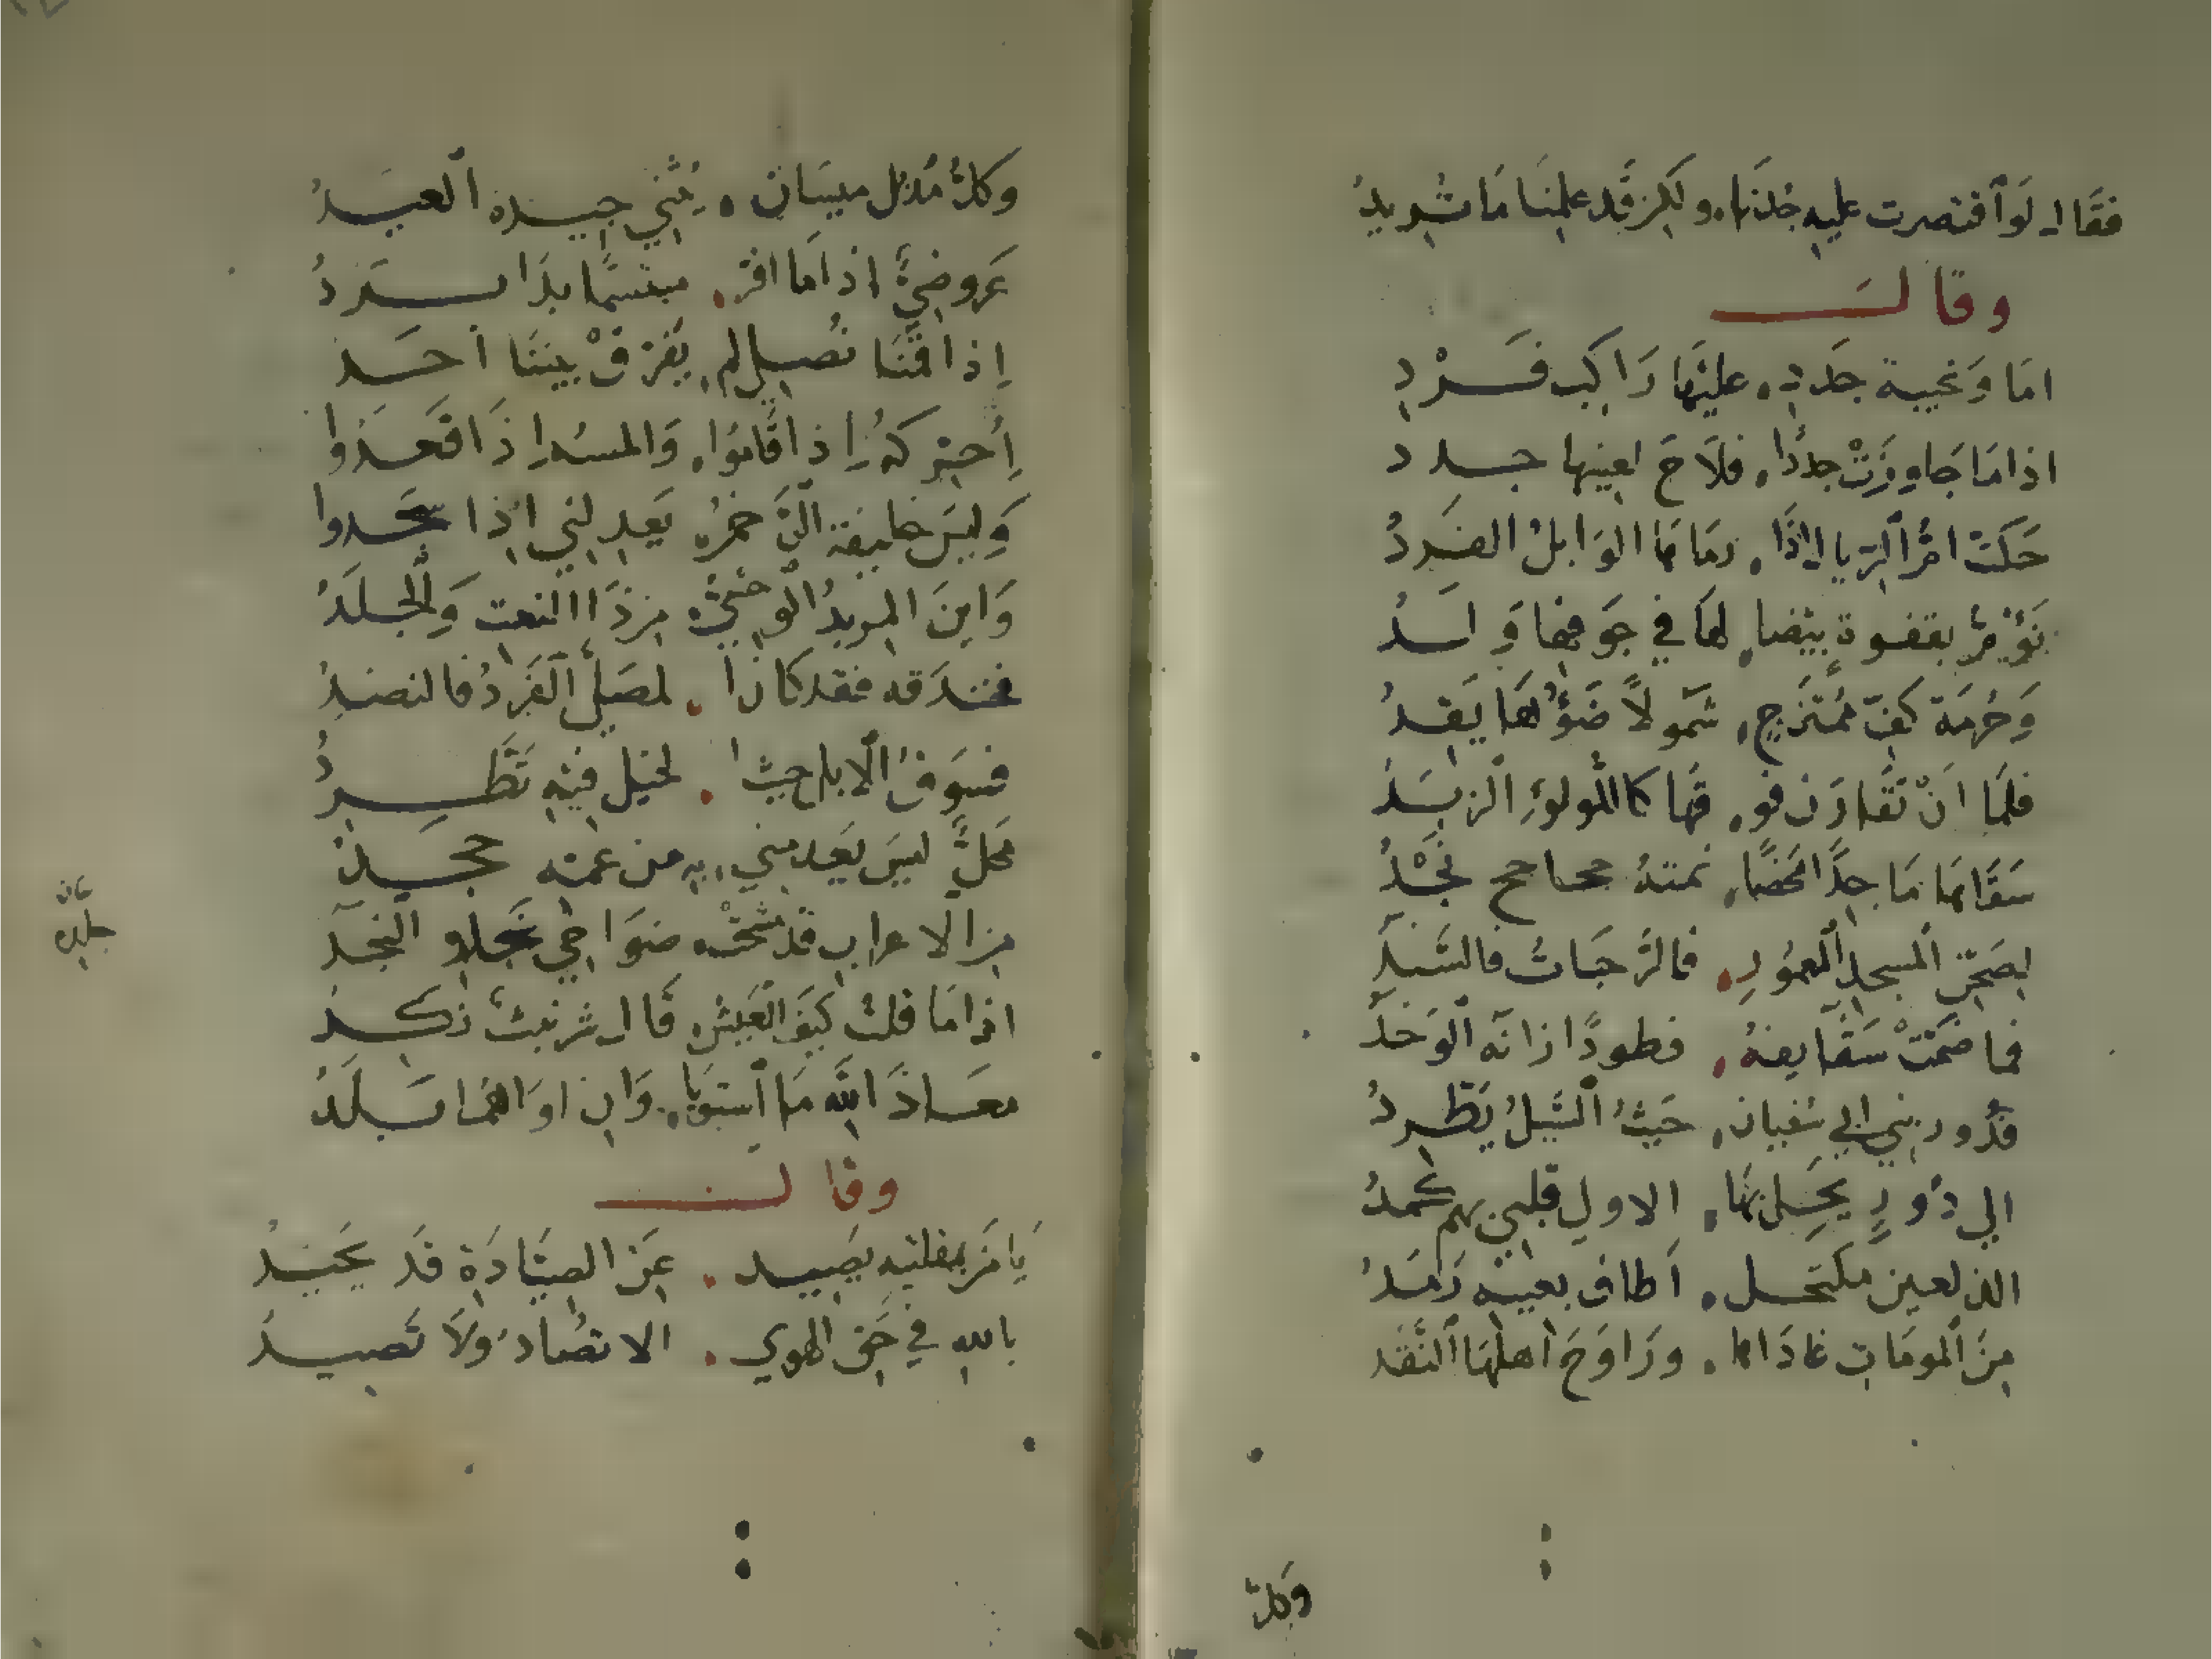 فقال لو اقتصرت عليه جلدنا . ولكن قد علمنا ما تريد
وقال
اما ونجيبة جدد . عليها راكب فرد
اذا ما جاوزت جددا . فلاح لعينها جدد
حكت
الوابل الفرد
بقفوة بيضا . لها في جوفها و اسد
وحرمة كف ممتزج . شمولا ضوؤها يقد
فلما ان تقارن فو . قها كاللولوء الزبد
سقاها ماجدا محضا . نمته جحاجح نجد
بصحن المسجد المعمور . فالرحبات فالسند
فما ضمت سقايفه . فطودا زانه الوحد
فدور بني ابي سفيان . حيث السيل يطرد
الي دور يحل بها . الاولي قلبي بهم كمد
الذ لعين مكتحل . اطاف بعينه رمد
من المومات غاداها . وراوح اهلها النقد
وكل
وكل مذلل ميسان . يثني جيده العيد
عروضي اذا ما افتر . مبتسما بدا برد
اذا قمنا نصلي لم . يفرق بيننا احد
احركه اذا قاموا . والمسه اذا قعدوا
وليس خليفة الرحمن يعدلني اذا سجدوا
واين المربد الوحشي من ذا النعت والجلد
فخندقه فقد كان . لمصلي الفرد فالنضد
فسوق الابل حيث . لخيل فيه تطرد
محل ليس يعدمني . به من عمه جحد
من الاعراب قد محشته ضواحي جلده النجد
اذا ما قلت كيف العيش قال شرنبث نكد
معاذ الله ما استويا . وان اواهما بلد
وقال
يا من بمقلتيه يصيد . عن الصيادة قد يحيد
بالله في حق الهوي . الا تصاد ولا تصيد
جلده